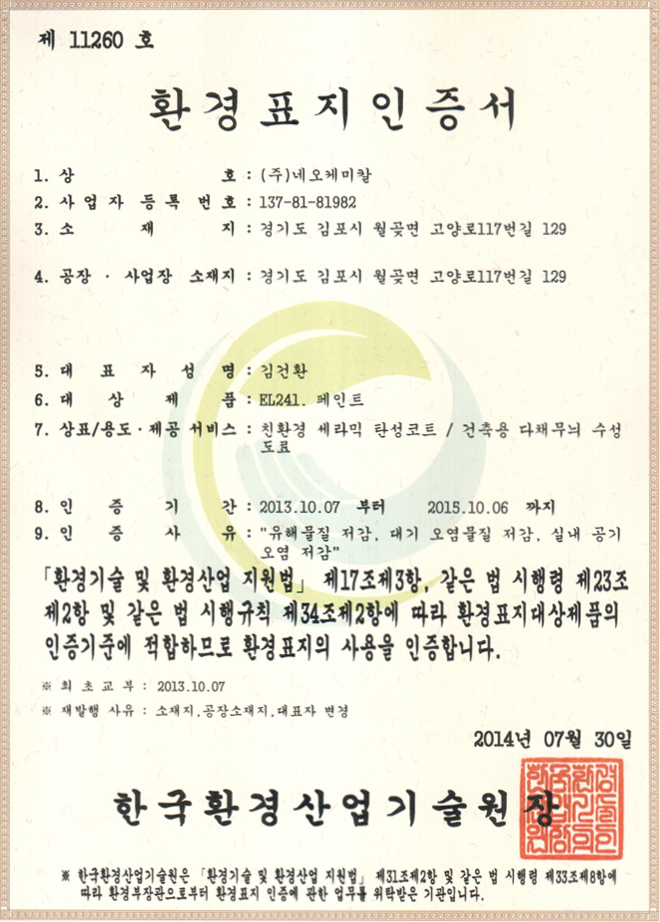 제 11260 호
환경표지인증서
1. 상 호 : (주)네오케미칼
2. 사 업 자 등 록 번 호 : 137-81-81982
3. 소 재 지 : 경기도 김포시 월곶면 고양로117번길 129
4. 공장 · 사업장 소재지 : 경기도 김포시 월곶면 고양로117번길 129
5. 대 표 자 성 명 : 김건환
6. 대 상 제 품 : EL241. 페인트
7. 상표/용도·제공 서비스 : 친환경 세라믹 탄성코트 / 건축용 다채무늬 수성
도료
8. 인 증 기 간 : 2013.10.07 부터 2015.10.06 까지
9. 인 증 사 유 : "유해물질 저감, 대기 오염물질 저감, 실내 공기
오염 저감"
「환경기술 및 환경산업 지원법」 제17조제3항, 같은 법 시행령 제23조
제2항 및 같은 법 시행규칙 제34조제2항에 따라 환경표지대상제품의
인증기준에 적합하므로 환경표지의 사용을 인증합니다.
※ 최 초 교 부 : 2013.10.07
※ 재발행 사유 : 소재지,공장소재지,대표자 변경
2014년 07월 30일
한국환경산업기술원장
※ 한국환경산업기술원은 「환경기술 및 환경산업 지원법」 제31조제2항 및 같은 법 시행령 제33조제8항에
따라 환경부장관으로부터 환경표지 인증에 관한 업무를 위탁받은 기관입니다.